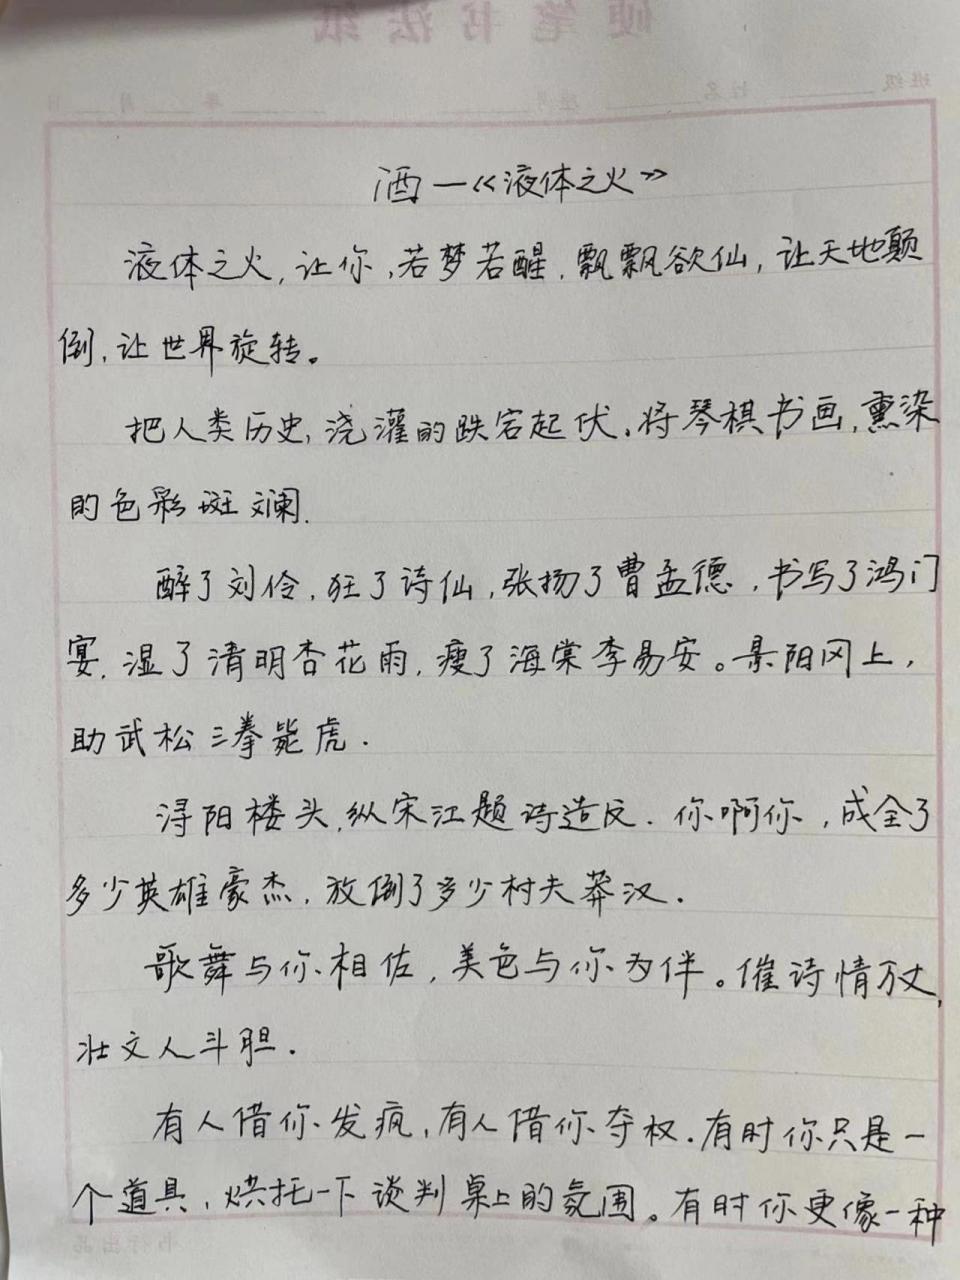 硬笔书法纸
班级 姓名 座号 年 月 日
酒—《液体之火》
液体之火,让你,若梦若醒,飘飘欲仙,让天地颠
倒,让世界旋转。
把人类历史,浇灌的跌宕起伏,将琴棋书画,熏染
的色彩斑斓.
醉了刘伶,狂了诗仙,张扬了曹孟德,书写了鸿门
宴,湿了清明杏花雨,瘦了海棠李易安。景阳冈上,
助武松三拳毙虎.
浔阳楼头,纵宋江题诗造反.你啊你,成全了
多少英雄豪杰,放倒了多少村夫莽汉.
歌舞与你相佐,美色与你为伴。催诗情万丈,
壮文人斗胆.
有人借你发疯,有人借你夺权.有时你只是一
个道具,烘托一下谈判桌上的氛围。有时你更像一种